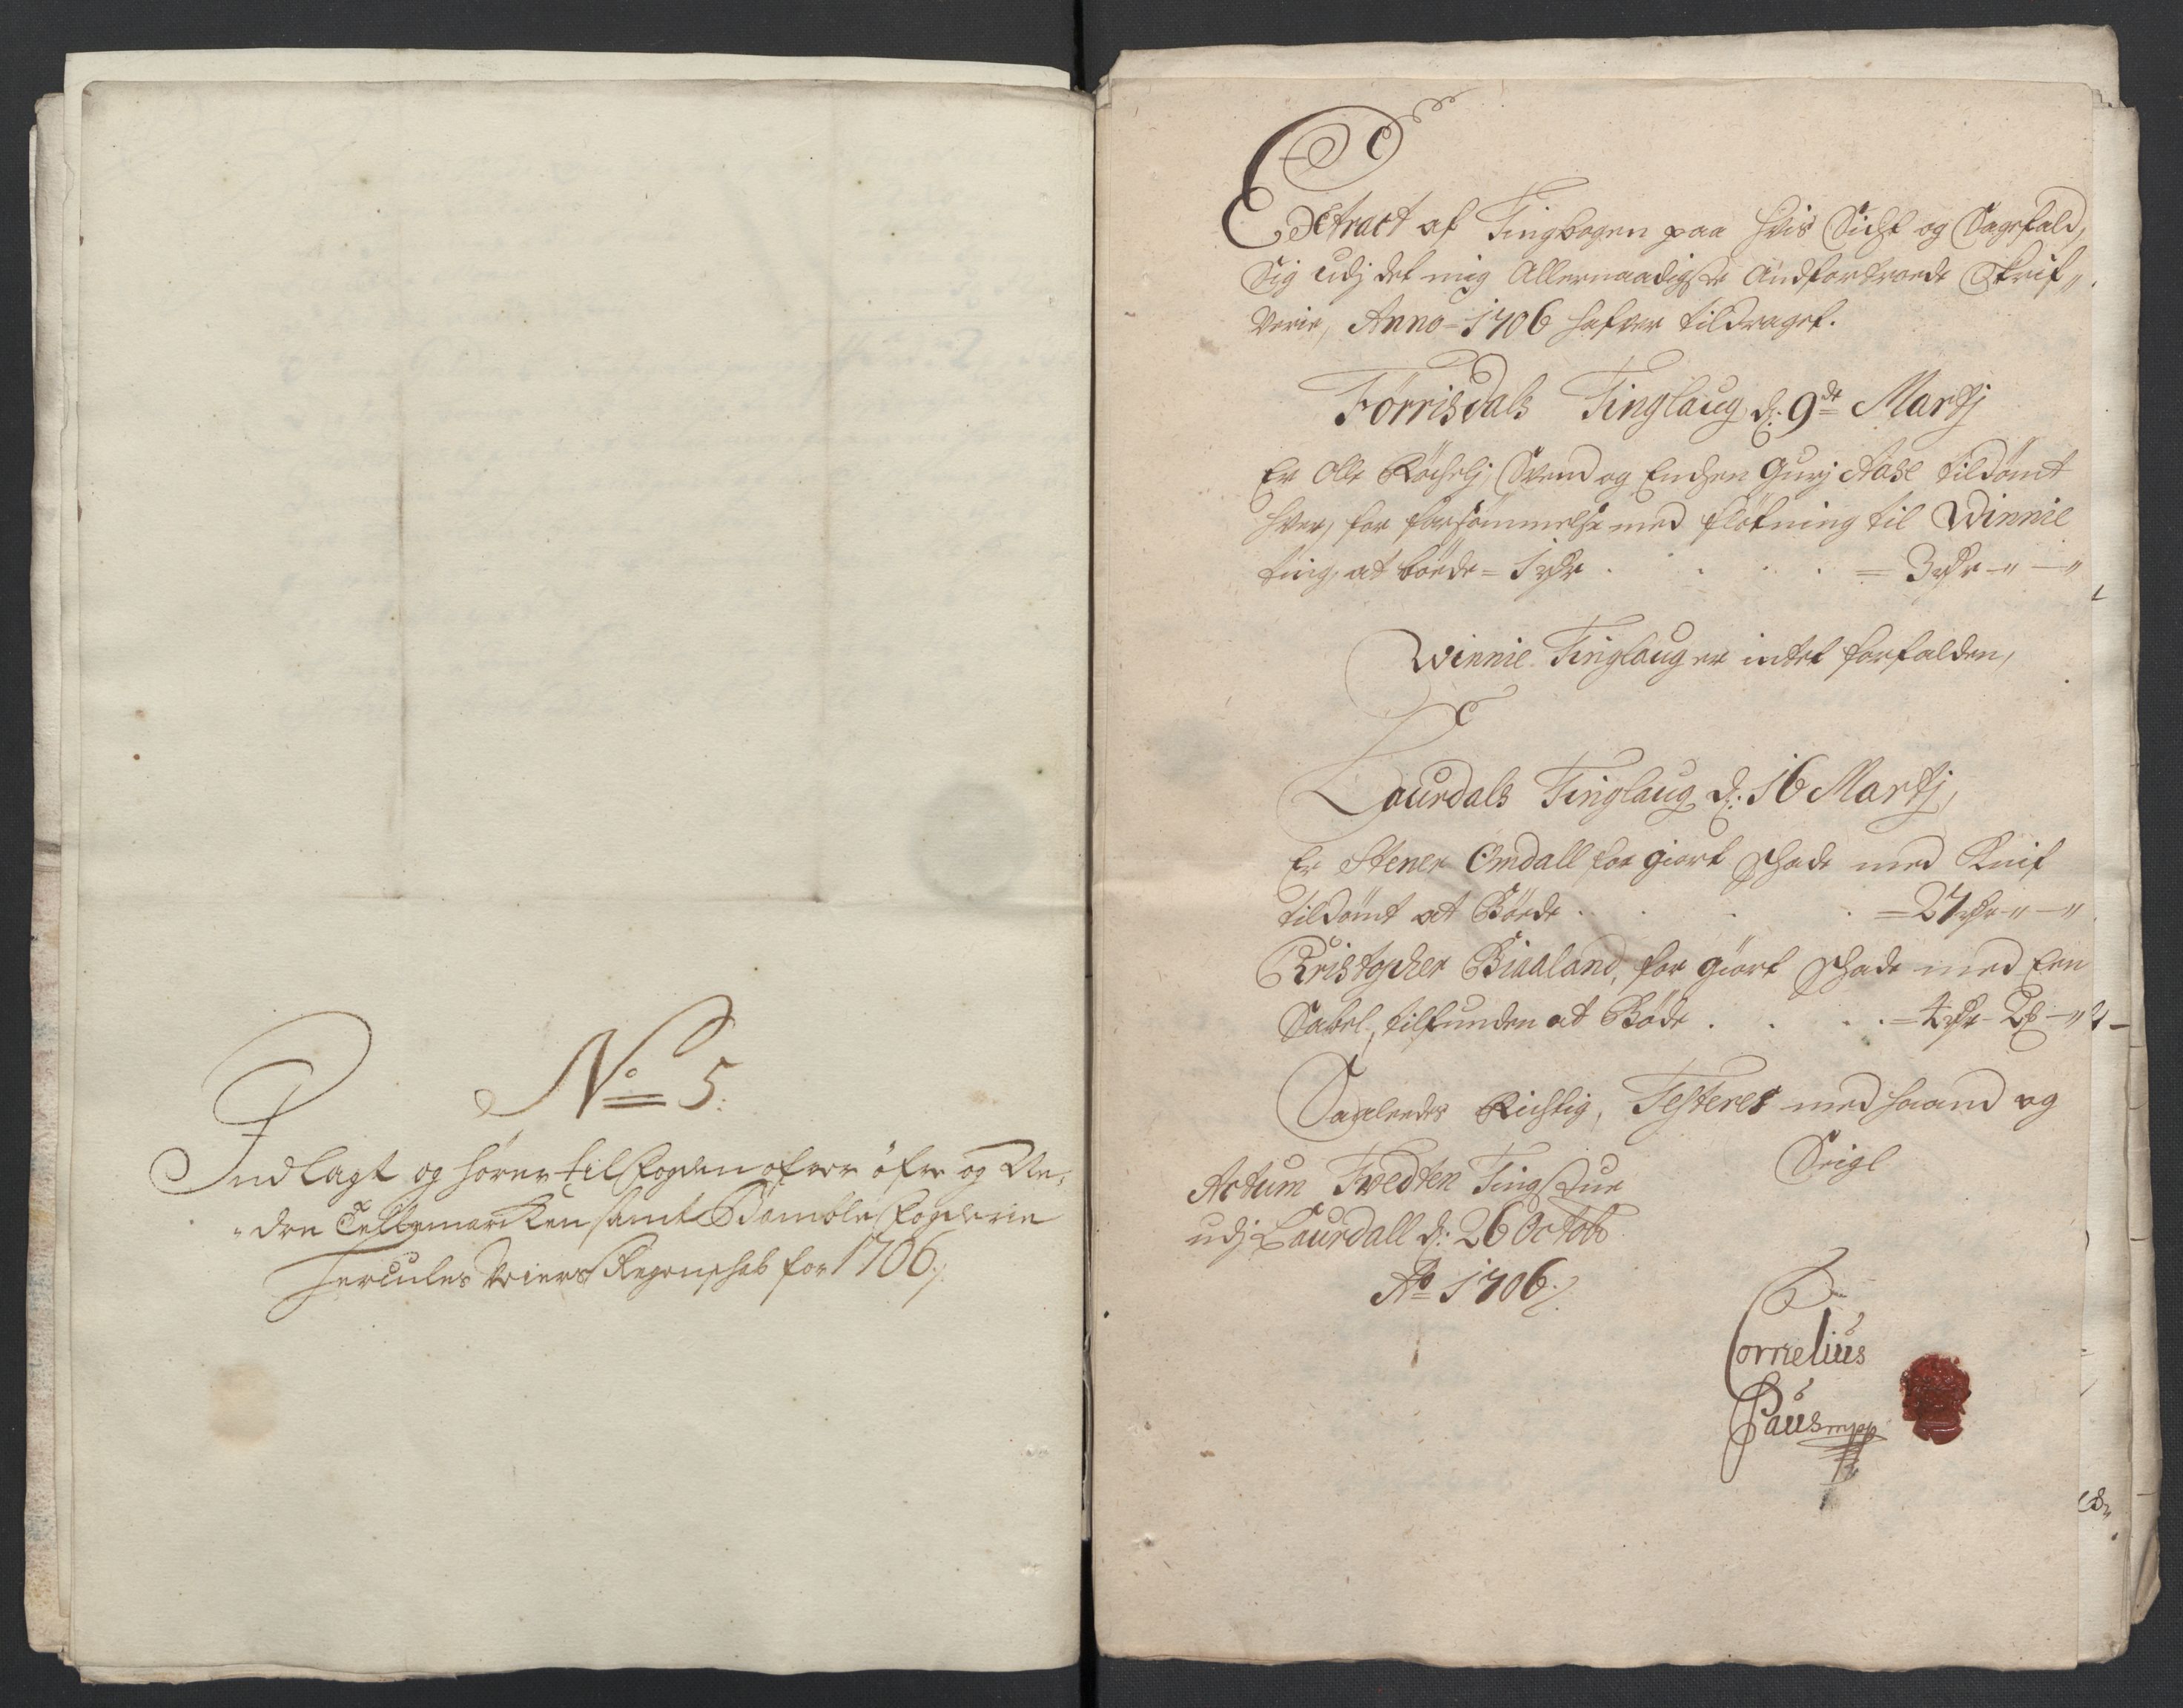 No 5.
Indlagt og hörer til fogden ofver öfre og Ne-
"dre Tellemarcken samt Bamble fogderie
Hercules Weiers Regenschab for 1706 ./.
Extract af Tingbogen paa hvis Sicht og Sagefald,
Sig udj det mig Allernaadigste Andfortroede Skrif„
verie, Anno 1706 hafver tildraget.
Förrisdals Tinglaug d: 9de Martj
Er Olle Svend og Enchen Gurj Aase tildömt
hver, for forsömmelse med flötning til Winnie
ting, at böede = 1 rdr . . . . = 3 rdr - " - "
Winnie Tinglaug er intet forfalden,
Laurdals Tinglaug d: 16 Martj,
Er Stener Omdall for giort schade med Knif
tildömt at Böede . . . . = 27 rdr - " - "
Kristopher Biaaland, for giort schade med Een
Sabel, tilfunden at Böde . . . . = 4 rdr - 2
Saaledes Richtig, Testeres med haand og
Seigl
Actum Tvedten Tingstue
udj Laurdall d: 26 Octob
Ao 1706 ./.
Cornelius
Paus mpp